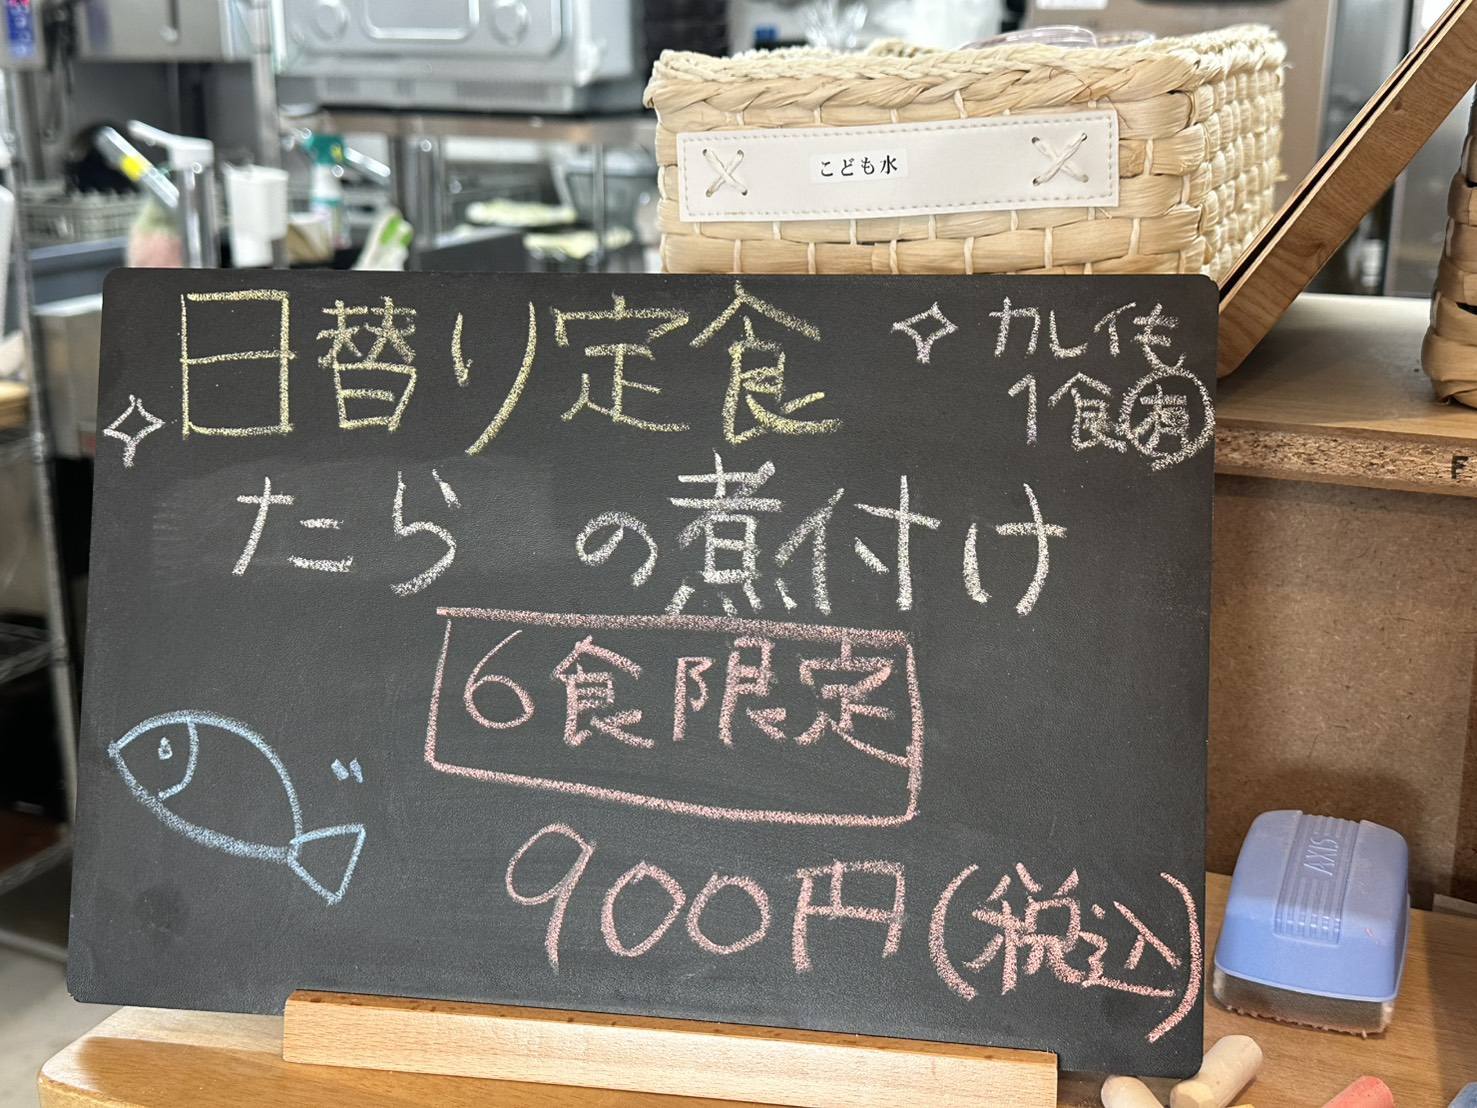 こども水
日替り定食
カレイも
1食有
たらの煮付け
6食限定
900円(税込)
AXIS
F